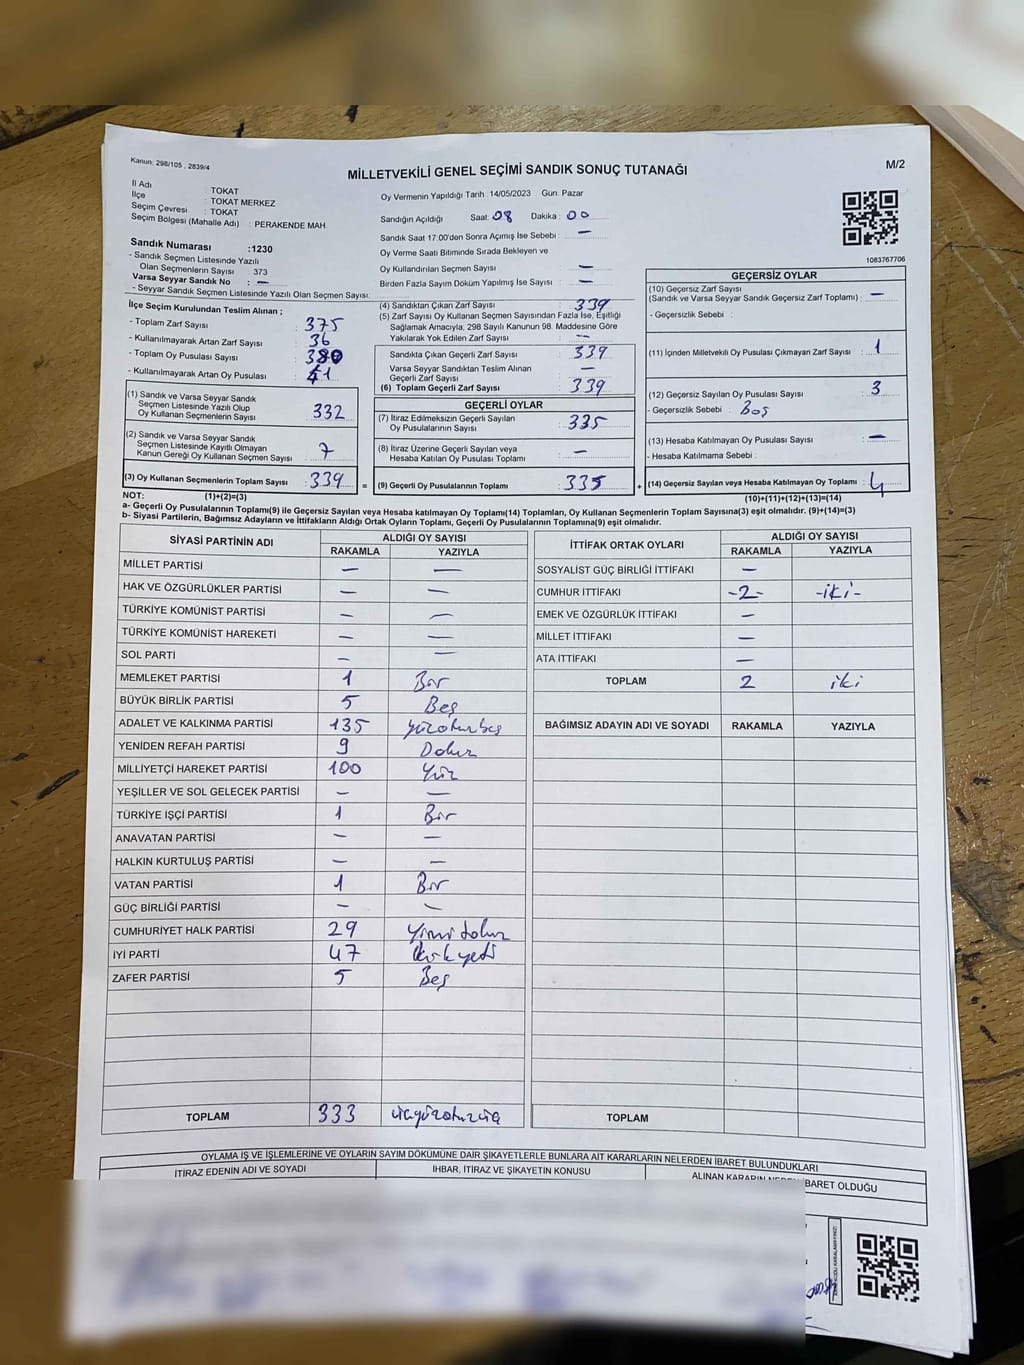 Kanun: 298/105 , 2839/4
MİLLETVEKİLİ GENEL SEÇİMİ SANDIK SONUÇ TUTANAĞI
M/2
İl Adı : TOKAT
İlçe : TOKAT MERKEZ
Seçim Çevresi : TOKAT
Seçim Bölgesi (Mahalle Adı) : PERAKENDE MAH.
Sandık Numarası :1230
- Sandık Seçmen Listesinde Yazılı
Olan Seçmenlerin Sayısı : 373
Varsa Seyyar Sandık No : —
- Seyyar Sandık Seçmen Listesinde Yazılı Olan Seçmen Sayısı:
Oy Vermenin Yapıldığı Tarih :14/05/2023 Gün: Pazar
Sandığın Açıldığı Saat: 08 Dakika : 00
Sandık Saat 17.00'den Sonra Açımış İse Sebebi : —
Oy Verme Saati Bitiminde Sırada Bekleyen ve
Oy Kullandırılan Seçmen Sayısı : —
Birden Fazla Sayım Döküm Yapılmış İse Sayısı : —
1083767706
İlçe Seçim Kurulundan Teslim Alınan ;
- Toplam Zarf Sayısı : 375
- Kullanılmayarak Artan Zarf Sayısı : 36
- Toplam Oy Pusulası Sayısı : 380
- Kullanılmayarak Artan Oy Pusulası : 41
(1) Sandık ve Varsa Seyyar Sandık
Seçmen Listesinde Yazılı Olup
Oy Kullanan Seçmenlerin Sayısı : 332
(2) Sandık ve Varsa Seyyar Sandık
Seçmen Listesinde Kayıtlı Olmayan
Kanun Gereği Oy Kullanan Seçmen Sayısı : 7
(3) Oy Kullanan Seçmenlerin Toplam Sayısı : 339 =
(4) Sandıktan Çıkan Zarf Sayısı : 339
(5) Zarf Sayısı Oy Kullanan Seçmen Sayısından Fazla İse, Eşitliği
Sağlamak Amacıyla; 298 Sayılı Kanunun 98. Maddesine Göre
Yakılarak Yok Edilen Zarf Sayısı : —
Sandıkta Çıkan Geçerli Zarf Sayısı : 339
Varsa Seyyar Sandıktan Teslim Alınan
Geçerli Zarf Sayısı : —
(6) Toplam Geçerli Zarf Sayısı : 339
GEÇERLİ OYLAR
(7) İtiraz Edilmeksizin Geçerli Sayılan
Oy Pusulalarının Sayısı : 335
(8) İtiraz Üzerine Geçerli Sayılan veya
Hesaba Katılan Oy Pusulası Toplamı : —
(9) Geçerli Oy Pusulalarının Toplamı : 335 +
GEÇERSİZ OYLAR
(10) Geçersiz Zarf Sayısı
(Sandık ve Varsa Seyyar Sandık Geçersiz Zarf Toplamı) : —
- Geçersizlik Sebebi :
(11) İçinden Milletvekili Oy Pusulası Çıkmayan Zarf Sayısı : 1
(12) Geçersiz Sayılan Oy Pusulası Sayısı : 3
- Geçersizlik Sebebi : Boş
(13) Hesaba Katılmayan Oy Pusulası Sayısı : —
- Hesaba Katılmama Sebebi :
(14) Geçersiz Sayılan veya Hesaba Katılmayan Oy Toplamı : 4
NOT: (1)+(2)=(3) (10)+(11)+(12)+(13)=(14)
a- Geçerli Oy Pusulalarının Toplamı(9) ile Geçersiz Sayılan veya Hesaba katılmayan Oy Toplamı(14) Toplamları, Oy Kullanan Seçmenlerin Toplam Sayısına(3) eşit olmalıdır. (9)+(14)=(3)
b- Siyasi Partilerin, Bağımsız Adayların ve İttifakların Aldığı Ortak Oyların Toplamı, Geçerli Oy Pusulalarının Toplamına(9) eşit olmalıdır.
SİYASİ PARTİNİN ADI ALDIĞI OY SAYISI
RAKAMLA YAZIYLA
MİLLET PARTİSİ — —
HAK VE ÖZGÜRLÜKLER PARTİSİ — —
TÜRKİYE KOMÜNİST PARTİSİ — —
TÜRKİYE KOMÜNİST HAREKETİ — —
SOL PARTİ — —
MEMLEKET PARTİSİ 1 Bir
BÜYÜK BİRLİK PARTİSİ 5 Beş
ADALET VE KALKINMA PARTİSİ 135 yüzotuzbeş
YENİDEN REFAH PARTİSİ 9 Dokuz
MİLLİYETÇİ HAREKET PARTİSİ 100 Yüz
YEŞİLLER VE SOL GELECEK PARTİSİ — —
TÜRKİYE İŞÇİ PARTİSİ 1 Bir
ANAVATAN PARTİSİ — —
HALKIN KURTULUŞ PARTİSİ — —
VATAN PARTİSİ 1 Bir
GÜÇ BİRLİĞİ PARTİSİ — —
CUMHURİYET HALK PARTİSİ 29 Yirmi dokuz
İYİ PARTİ 47 kırk yedi
ZAFER PARTİSİ 5 Beş
TOPLAM 333 üçyüzotuzüç
İTTİFAK ORTAK OYLARI ALDIĞI OY SAYISI
RAKAMLA YAZIYLA
SOSYALİST GÜÇ BİRLİĞİ İTTİFAKI —
CUMHUR İTTİFAKI -2- -iki-
EMEK VE ÖZGÜRLÜK İTTİFAKI —
MİLLET İTTİFAKI —
ATA İTTİFAKI —
TOPLAM 2 iki
BAĞIMSIZ ADAYIN ADI VE SOYADI RAKAMLA YAZIYLA
TOPLAM
OYLAMA İŞ VE İŞLEMLERİNE VE OYLARIN SAYIM DÖKÜMÜNE DAİR ŞİKAYETLERLE BUNLARA AİT KARARLARIN NELERDEN İBARET BULUNDUKLARI
İTİRAZ EDENİN ADI VE SOYADI
İHBAR, İTİRAZ VE ŞİKAYETİN KONUSU
ALINAN KARARIN NEDEN İBARET OLDUĞU